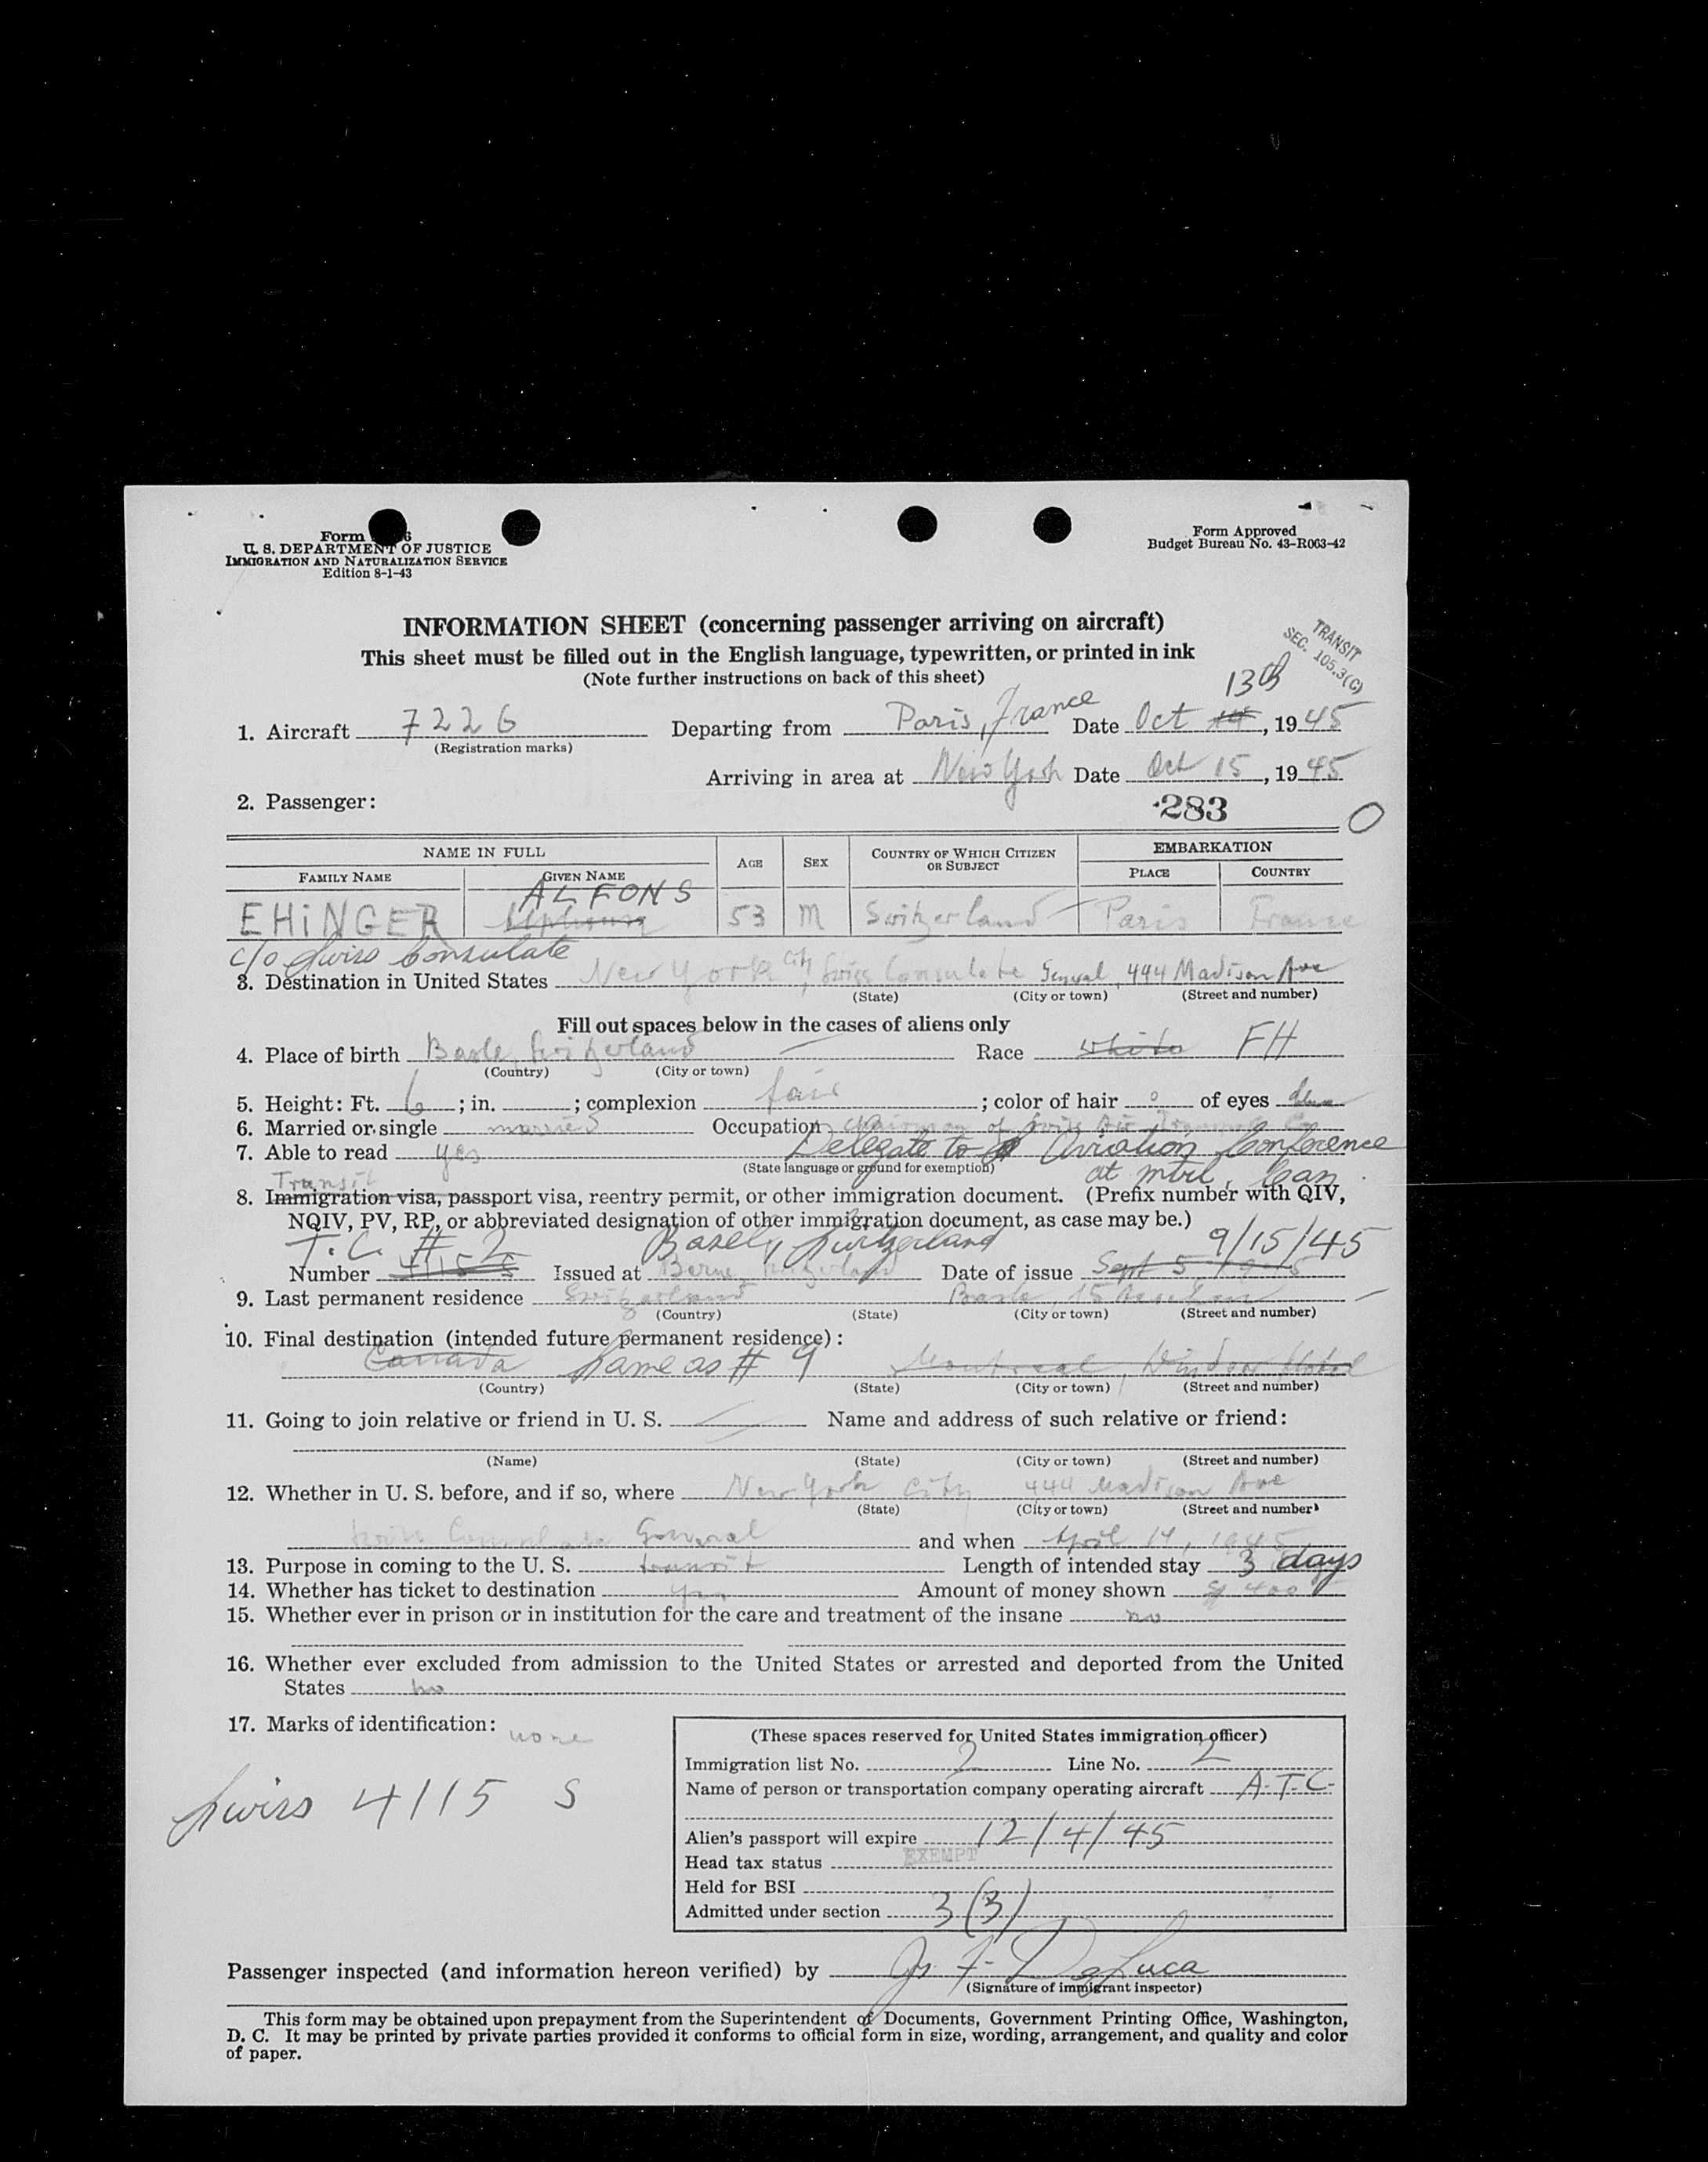 Form 6
U. S. DEPARTMENT OF JUSTICE
IMMIGRATION AND NATURALIZATION SERVICE
Edition 8-1-43
Form Approved
Budget Bureau No. 43-R063-42
INFORMATION SHEET (concerning passenger arriving on aircraft)
This sheet must be filled out in the English language, typewritten, or printed in ink
(Note further instructions on back of this sheet)
TRANSIT
SEC. 105.3(C)
13th
1. Aircraft 7226 Departing from Paris, France Date Oct 14, 1945
(Registration marks)
Arriving in area at New York Date Oct 15, 1945
2. Passenger: 283 O
NAME IN FULL AGE SEX COUNTRY OF WHICH CITIZEN OR SUBJECT EMBARKATION
FAMILY NAME GIVEN NAME PLACE COUNTRY
ALFONS
EHINGER 53 M Switzerland Paris France
c/o Swiss Consulate
3. Destination in United States New York City, Swiss Consulate General, 444 Madison Ave
(State) (City or town) (Street and number)
Fill out spaces below in the cases of aliens only
4. Place of birth Basle, Switzerland Race white FH
(Country) (City or town)
5. Height: Ft. 6; in. ; complexion fair; color of hair o of eyes blue
6. Married or single married Occupation chairman of Swiss Air
7. Able to read yes Delegate to Aviation Conference
(State language or ground for exemption) at mtrl, Can.
Transit
8. Immigration visa, passport visa, reentry permit, or other immigration document. (Prefix number with QIV,
NQIV, PV, RP, or abbreviated designation of other immigration document, as case may be.)
T.C. # 2 Basel, Switzerland 9/15/45
Number 4115 S Issued at Berne, Switzerland Date of issue Sept 5
9. Last permanent residence Switzerland Basle, 15
(Country) (State) (City or town) (Street and number)
10. Final destination (intended future permanent residence):
Canada Same as # 9 Montreal, Windsor Hotel
(Country) (State) (City or town) (Street and number)
11. Going to join relative or friend in U. S. Name and address of such relative or friend:
(Name) (State) (City or town) (Street and number)
12. Whether in U. S. before, and if so, where New York City 444 Madison Ave
(State) (City or town) (Street and number)
Swiss Consulate General and when April 14, 1945
13. Purpose in coming to the U. S. transit Length of intended stay 3 days
14. Whether has ticket to destination yes Amount of money shown $ 400
15. Whether ever in prison or in institution for the care and treatment of the insane no
16. Whether ever excluded from admission to the United States or arrested and deported from the United
States no
17. Marks of identification: none
Swiss 4115 S
(These spaces reserved for United States immigration officer)
Immigration list No. 2 Line No. 2
Name of person or transportation company operating aircraft A.T.C.
Alien's passport will expire 12/4/45
Head tax status EXEMPT
Held for BSI
Admitted under section 3(3)
Passenger inspected (and information hereon verified) by Js. F. DeLuca
(Signature of immigrant inspector)
This form may be obtained upon prepayment from the Superintendent of Documents, Government Printing Office, Washington,
D. C. It may be printed by private parties provided it conforms to official form in size, wording, arrangement, and quality and color
of paper.